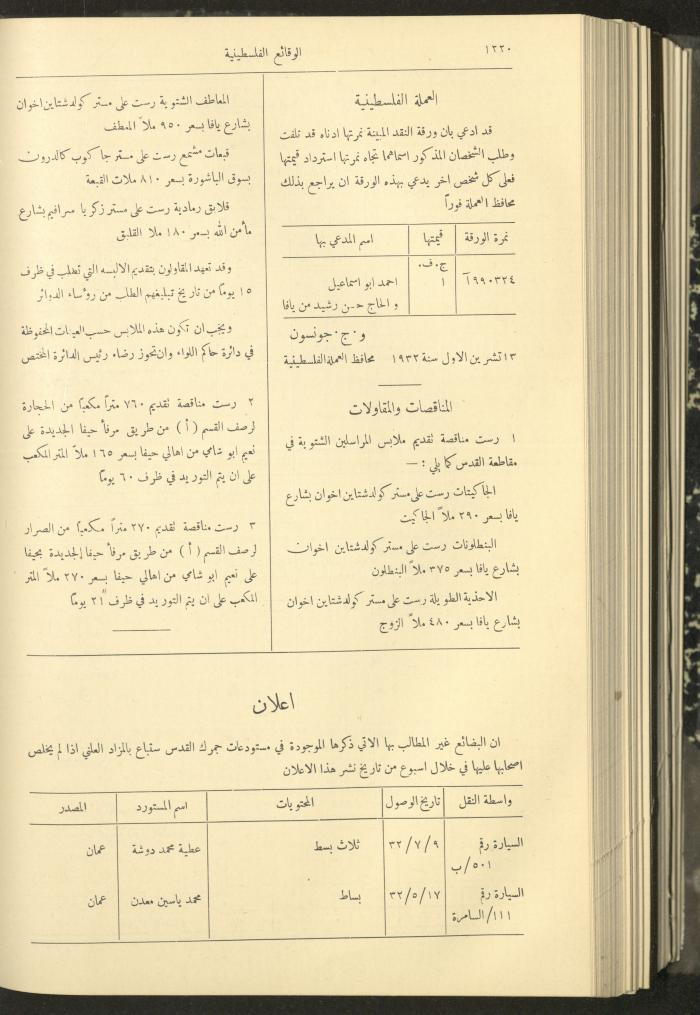 ١٢٢٠
الوقائع الفلسطينية
العملة الفلسطينية
قد ادعي بان ورقة النقد المبينة نمرتها ادناه قد تلفت
وطلب الشخصان المذكور اسماهما تجاه نمرتها استرداد قيمتها
فعلى كل شخص اخر يدعي بهذه الورقة ان يراجع بذلك
محافظ العملة فوراً
نمرة الورقة قيمتها اسم المدعي بها
ج.ف.
٩٩٠٣٢٤آ ١ احمد ابو اسماعيل
و الحاج حسن رشيد من يافا
و.ج.جونسون
١٣ تشرين الاول سنة ١٩٣٢ محافظ العملة الفلسطينية
المناقصات والمقاولات
١ رست مناقصة تقديم ملابس المراسلين الشتوية في
مقاطعة القدس كما يلي : —
الجاكيتات رست على مستر كولدشتاين اخوان بشارع
يافا بسعر ٣٩٠ ملاً الجاكيت
البنطلونات رست على مستر كولدشتاين اخوان
بشارع يافا بسعر ٣٧٥ ملاً البنطلون
الاحذية الطويلة رست على مستر كولدشتاين اخوان
بشارع يافا بسعر ٤٨٠ ملاً الزوج
المعاطف الشتوية رست على مستر كولدشتاين اخوان
بشارع يافا بسعر ٩٥٠ ملاً المعطف
قبعات مشمع رست على مستر جاكوب كالدرون
بسوق الباشورة بسعر ٨١٠ ملات القبعة
قلابق رمادية رست على مستر زكريا سرافيم بشارع
مأمن الله بسعر ١٨٠ ملا القلبق
وقد تعهد المقاولون بتقديم الالبسه التي تطلب في ظرف
١٥ يوماً من تاريخ تبليغهم الطلب من روٴساء الدوائر
ويجب ان تكون هذه الملابس حسب العينات المحفوظة
في دائرة حاكم اللواء وان تحوز رضاء رئيس الدائرة المختص
٢ رست مناقصة تقديم ٧٦٠ متراً مكعباً من الحجارة
لرصف القسم ( أ ) من طريق مرفأ حيفا الجديدة على
نعيم ابو شامي من اهالي حيفا بسعر ١٦٥ ملاً المتر المكعب
على ان يتم التوريد في ظرف ٦٠ يوماً
٣ رست مناقصة تقديم ٢٧٠ متراً مكعباً من الصرار
لرصف القسم ( أ ) من طريق مرفأ حيفا الجديدة بحيفا
على نعيم ابو شامي من اهالي حيفا بسعر ٢٧٠ ملاً المتر
المكعب على ان يتم التوريد في ظرف ٢١ يوماً
اعلان
ان البضائع غير المطالب بها الاتي ذكرها الموجودة في مستودعات جمرك القدس ستباع بالمزاد العلني اذا لم يخلص
اصحابها عليها في خلال اسبوع من تاريخ نشر هذا الاعلان
واسطة النقل تاريخ الوصول المحتويات اسم المستورد المصدر
السيارة رقم ٣٢/٧/٩ ثلاث بسط عطية محمد دوشة عمان
٥٠١/ب
السيارة رقم ٣٢/٥/١٧ بساط محمد ياسين معدن عمان
١١١/السامرة